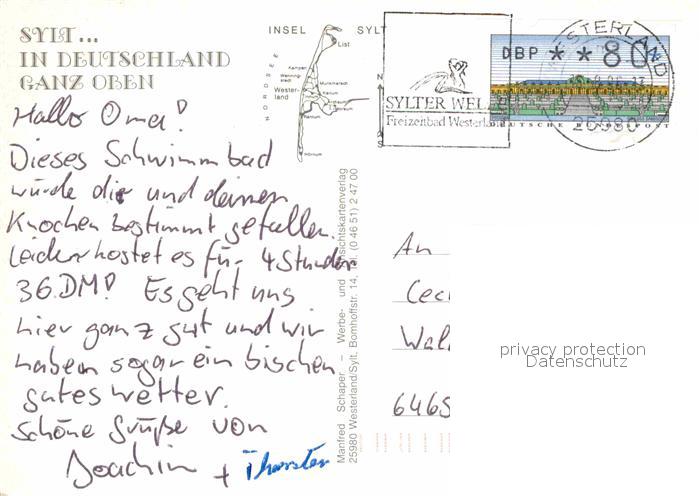 SYLT...
IN DEUTSCHLAND
GANZ OBEN
Hallo Oma!
Dieses Schwimmbad
würde dir und deinen
Knochen bestimmt gefallen.
Leider kostet es für 4 Stunden
36.DM! Es geht uns
hier ganz gut und wir
haben sogar ein bischen
gutes wetter.
Schöne Grüße von
Joachim + Thorsten
INSEL SYLT
NORDSEE
List
Kampen
Wenning-
stedt
Munkmarsch
Wester-
land
Keitum
Rantum
Hörnum
Manfred Schaper – Werbe- und Ansichtskartenverlag
25980 Westerland/Sylt, Bomhoffstr. 14, Tel. (0 46 51) 2 47 00
SYLTER WEL
Freizeitbad Westerland
DBP * * 80
DEUTSCHE BUNDESPOST
WESTERLAND
25980
An
Cec
Wal
6465
privacy protection
Datenschutz